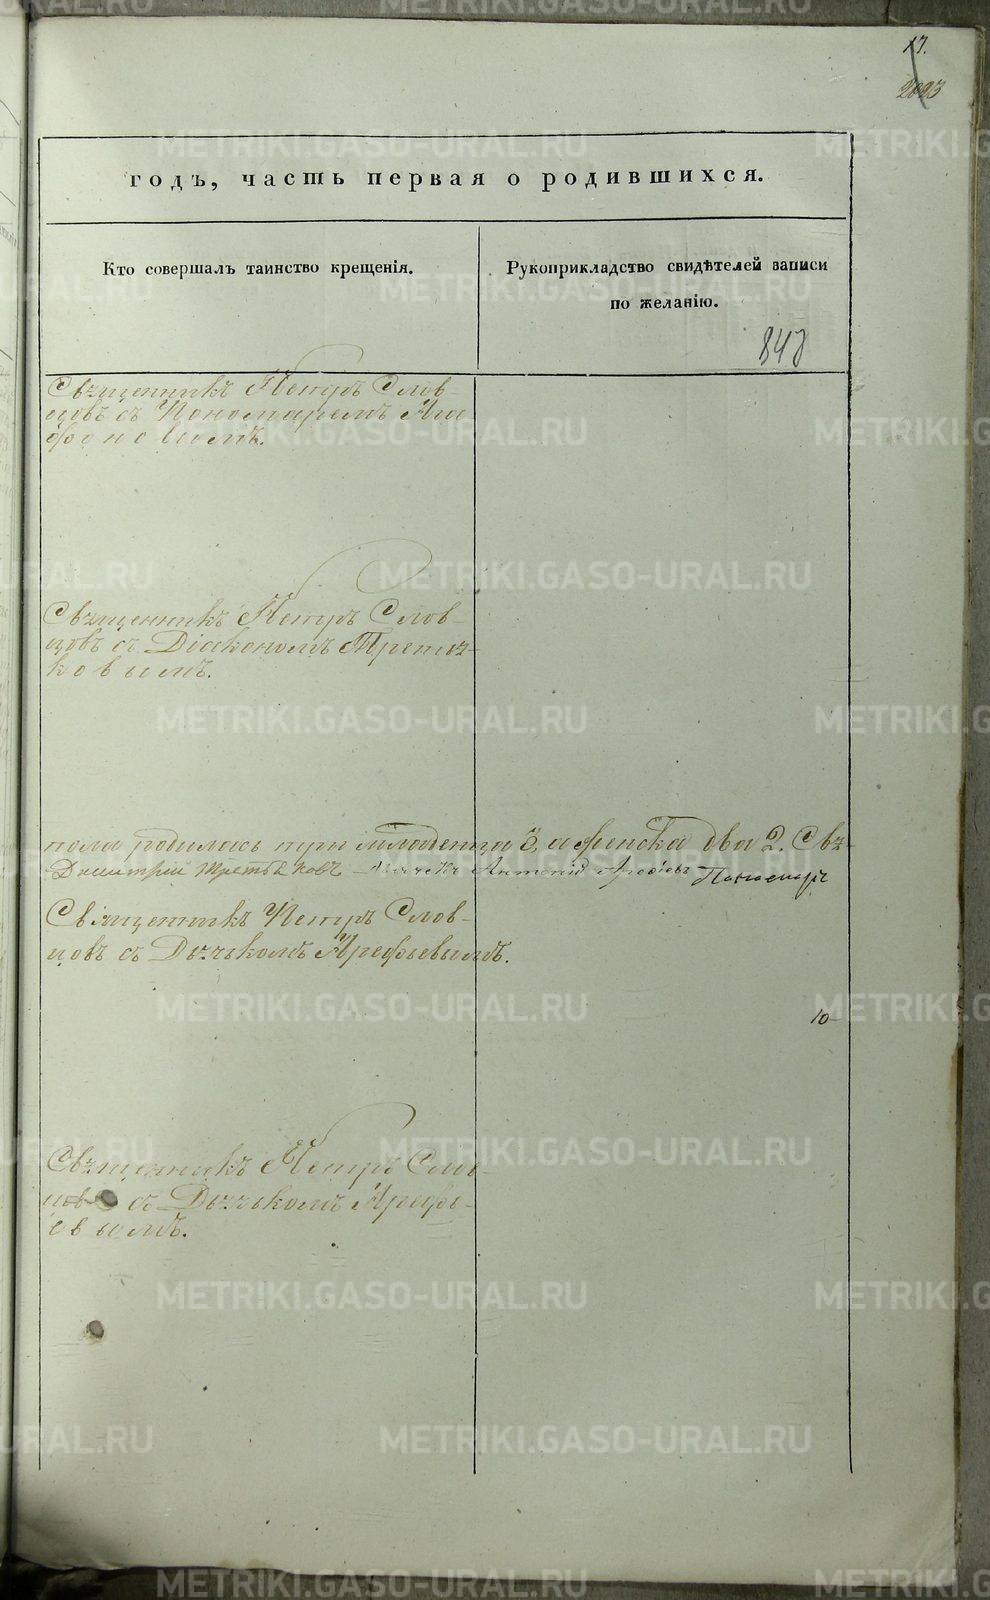 17.
2023
годъ, часть первая о родившихся.
Кто совершалъ таинство крещенія.
Рукоприкладство свидѣтелей записи
по желанію.
848
Священникъ Петръ Слов-
цовъ съ Пономаремъ Ага
фоновымъ.
Священникъ Петръ Слов-
цовъ съ Діакономъ Третья-
ковымъ.
пола родилось три младенца 3, а женска два 2. Свя-
Димитрій Третьяковъ Дьячекъ Антоній Арефьевъ Пономарь
Священникъ Петръ Слов-
цовъ съ Дьячькомъ Арефьевымъ.
10
Священникъ Петръ Слов-
цовъ съ Дьячькомъ Арефь-
евымъ.
METRIKI.GASO-URAL.RU